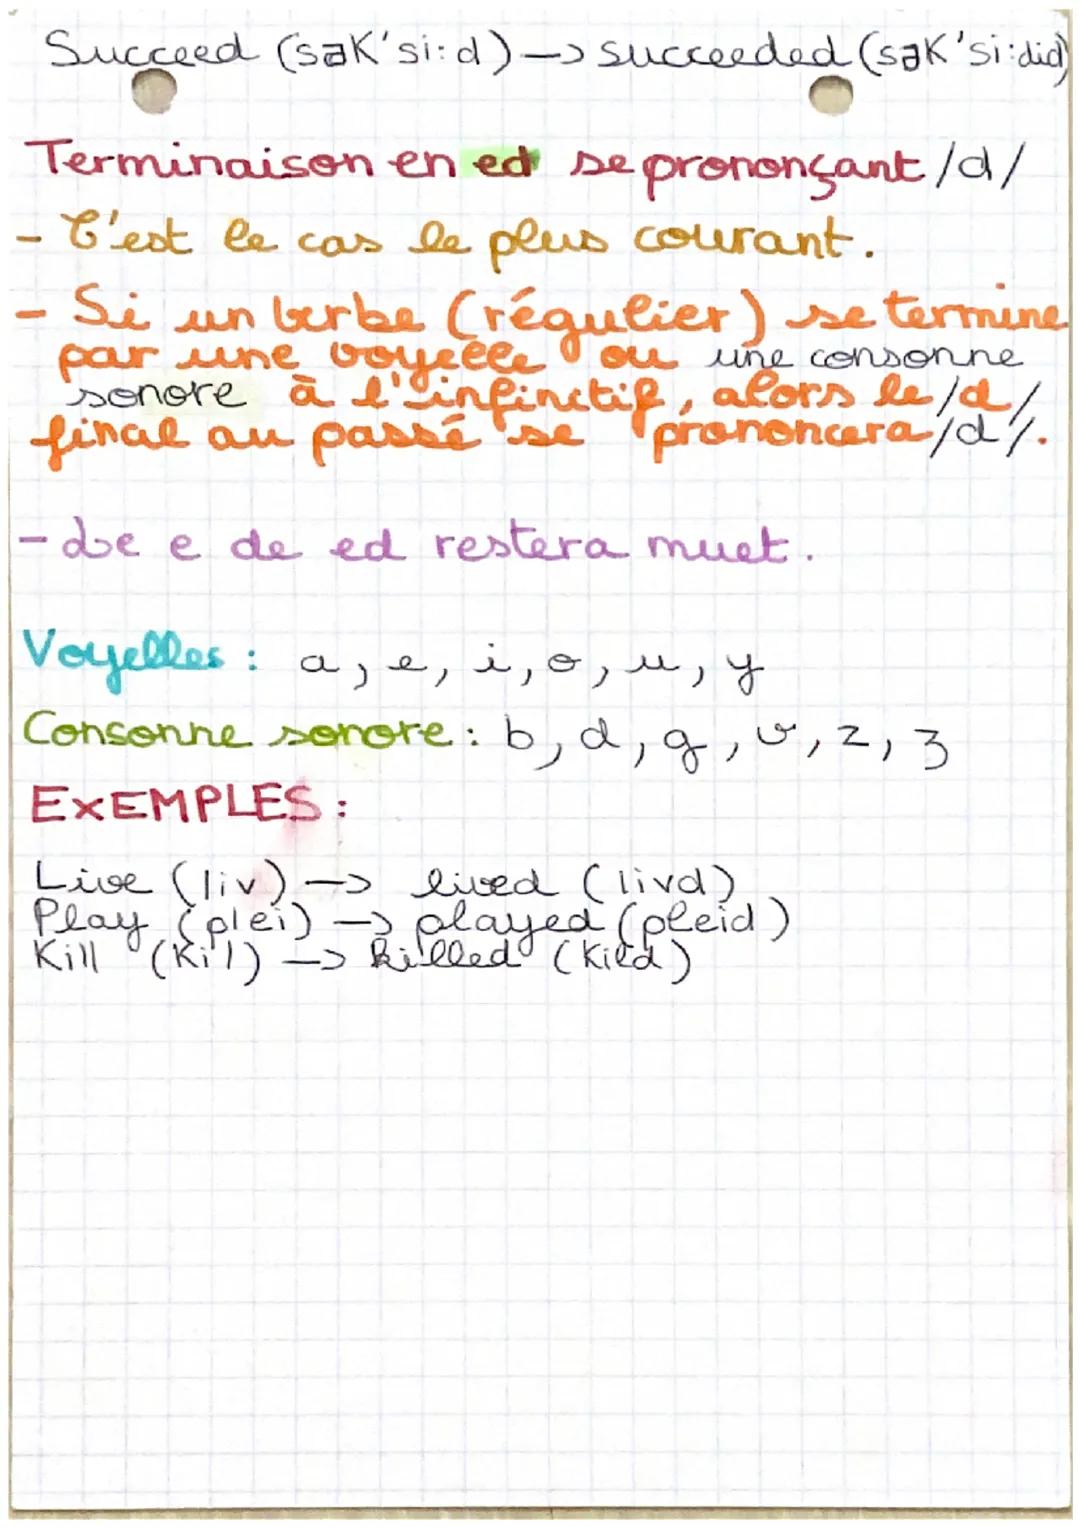 Succeed (sək'si:d) -> succeeded (sək'si:did)
Terminaison en ed se prononçant /d/
- C'est le cas le plus courant.
- Si un verbe (régulier) se termine
par une voyelle ou une consonne
sonore à l'infinitif, alors le /d/
final au passé se prononcera /d/.
- Le e de ed restera muet.
Voyelles : a, e, i, o, u, y
Consonne sonore : b, d, g, v, z, ʒ
EXEMPLES :
Live (liv) -> lived (livd)
Play (plei) -> played (pleid)
Kill (Kil) -> killed (Kild)